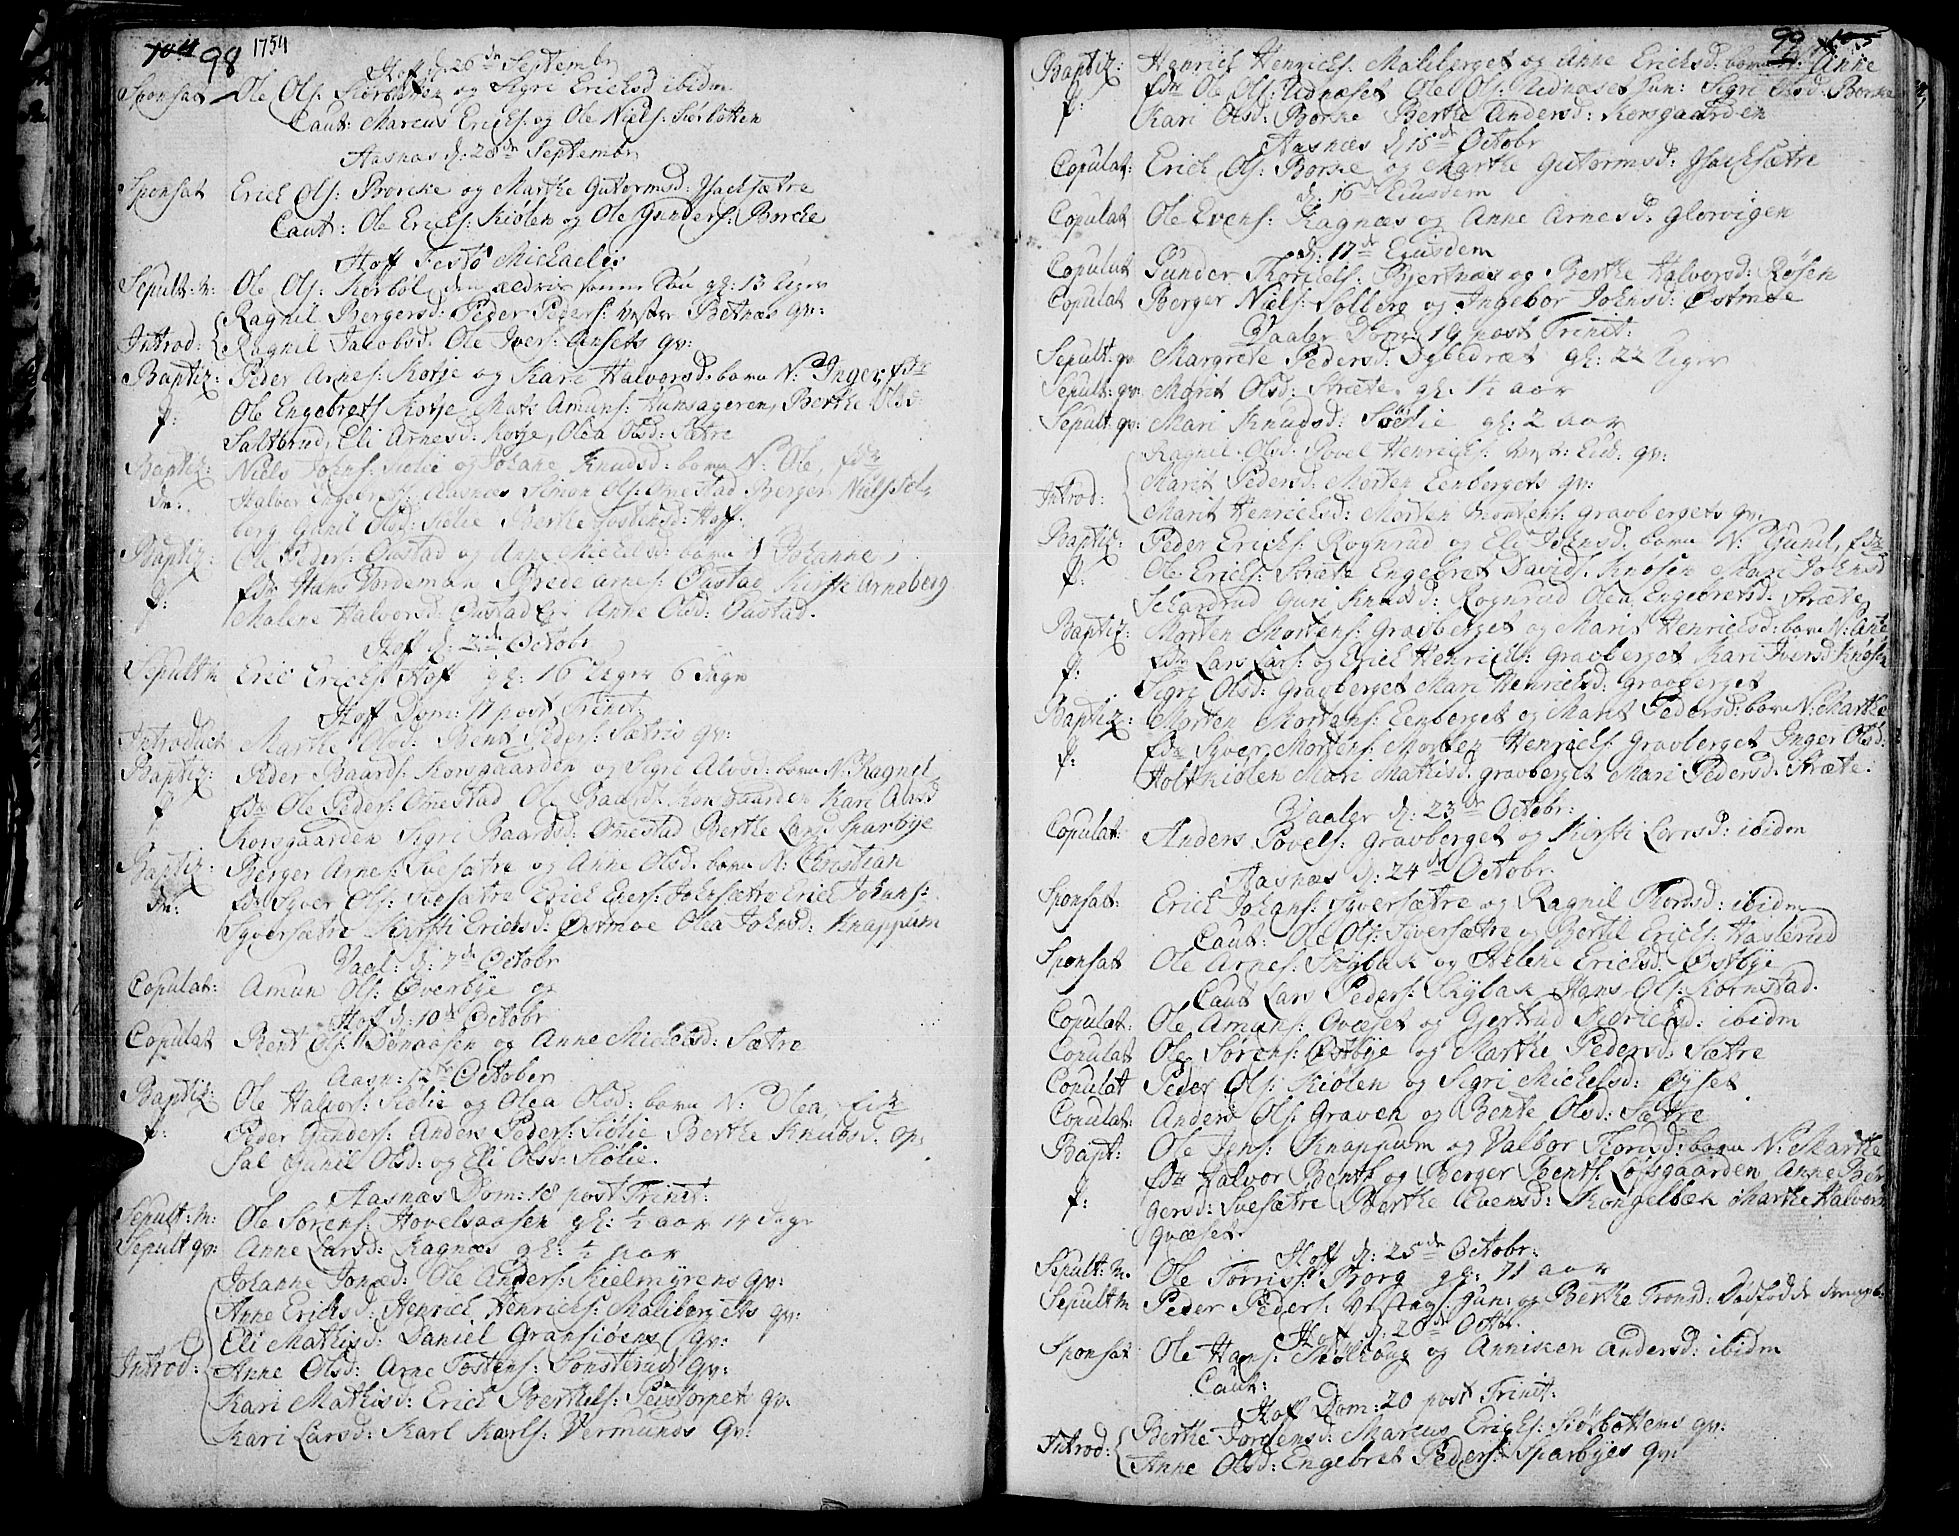 98 1754
Hoff d: 26de Septembr
Sponsat Ole Ols: Siørbotten og Sigri Ericksd ibidm
Caut: Marcus Ericks: og Ole Niels: Siørbotten
Aasnæs d: 28de Septembr
Sponsat Erick Ols: Borcke og Marthe Gutormsd: Isacksætre
Caut: Ole Ericks: Kiølen og Ole Gunders: Borcke
Hoff Festo Michaelis
Sepult: m: Ole Ols: Kiørbøl gl: 13 Uger
Ragnil Bergersd: Peder Peders: Vester Betnæs qv:
Introd: Ragnil Jacobsd: Ole Ivers: Ansets qv:
Baptiz: Peder Arnes: Kotje og Kari Halvorsd: barn N: Inger, fdr
f: Ole Engebrets Kotje, Mats Amuns: Hunsageren, Berthe Olsd:
Saltbrud, Eli Arnesd: Kotje, Olea Olsd: Sætre
Baptiz: Niels Johns: Siølie og Johane Knudsd: barn N: Ole, fdr
Dr: Halvor Aasnæs Simon Ols: Omestad Berger Niels: Sol-
berg Gunil Olsd: Siølie Berthe Tostensd: Hoff.
Baptiz: Ole Peders: Oustad og Anne Mickelsd: barn N Johanne,
f: fdr Hans Nordeman Brede Arnes: Oustad, Kirsti Arneberg
Malene Halvorsd: Oustad Anne Olsd: Oustad.
Hoff d: 2de Octobr
Sepult m Eric Ericks: Hoff gl: 16 Uger 6 Dage
Hoff Dom: 17 post Trinit:
Introduct Marthe Olsd: Bent Peders: Sætris qv:
Baptiz: Peder Baards: Korsgaarden og Sigri Alvsd: barn N: Ragnel
f fdr Ole Peders: Omestad, Ole Baards: Korsgaarden Kari Alvsd
Korsgaarden Sigri Baardsd: Omestad Berthe Larsd Sparbye
Baptiz: Berger Arnes: Svesætre og Anne Olsd: barn N: Christian
Dr: fdr Syver Ols: Svesætre Erick Evers: Johnsætre Erick Johans:
Syversætre Kirsti Ericksd: Østmoe Olea Johnsd: Knappum
Vaal: d: 7de Octobr
Copulat: Amun Ols: Øverbye og
Hoff d: 10de Octobr
Copulat Bent Ols: Dønaasen og Anne Mickelsd: Sætre
Aasn: 12te October
Baptiz: Ole Halvors: Siølie og Olea Olsd: barn N: Olea, fdr
f: Peder Gunders: Anders Peders: Siølie Berthe Knudsd: Op-
sal Gunil Olsd: og Eli Olsd: Siølie.
Aasnæs Dom: 18 post Trinit:
Sepult: m: Ole Sørens: Hovelsaasen gl: ½ aar 14 dage
Sepult qv: Anne Larsd: Kagnæs gl: ½ aar
Johanne Jonæd: Ole Anders: Kielmyrens qv:
Anne Ericksd: Henrick Henricks: Malibergets qv:
Eli Mathisd: Daniel Gransiøens qv:
Introd: Anne Olsd: Arne Tostens: Sønsterud qv:
Kari Mathisd: Erick Berthels: Peistorpet qv.
Kari Larsd: Karl Karls: Vermunds qv:
99
Baptiz: Henrick Henricks: Maliberget og Anne Ericksd: barn N: Anne
f: fdr Ole Ols: Udnæset Ole Ols: Udnæset Jun: Sigri Olsd: Borcke
Kari Olsd: Borcke Berthe Andersd: Korsgaarden
Aasnæs d 15de Octobr
Copulat: Erick Ols: Borcke og Marthe Gutormsd: Isacksætre
d: 16de Eiusdem
Copulat Ole Evens: Kagnæs og Anne Arnesd: Glorvigen
d: 17de Eiusdem
Copulat Gunder Bjertnæs og Berthe Halvorsd: Røsen
Copulat Berger Niels: Solberg og Ingebor Johnsd: Østmoe
Vaaler Dom: 19 post Trinit:
Sepult: qv Margrete Pedersd: gl: 22 Uger
Sepult: qv: Marit Olsd: Stræte gl: 1½ aar
Sepult: qv: Mari Knudsd: Sørlie gl: 2 aar
Ragnil Olsd: Povel Henricks: Vest: Eid: qv:
Introd: Marit Pedersd: Morten Eenbergets qv:
Marit Henricksd: Morten Mortens: Gravbergets qv:
Baptiz: Peder Ericks: Rognrud og Eli Johnsd: barn N: Gunil, fdr
f: Ole Ericks: Stræte Engebret Davids: Knosen Mari Johnsd
Schardrud Guri Knudsd: Rognrud Olea Engebretsd: Stræte
Baptiz: Morten Mortens: Gravberget og Marit Henricksd: barn N: Ane
f: fdr Lars Lars: og Erick Henricks: Gravberget Kari Iversd Knosen
Sigri Olsd: Gravberget Mari Henricksd: Gravberget
Baptiz: Morten Mortens: Eenberget og Marit Pedersd: barn N: Marthe
f: fdr Syver Mortens: Morten Henricks: Gravberget Inger Olsd:
Holtkiølen Mari Mathisd: Gravberget Mari Pedersd: Stræte.
Vaaler d: 23de Octobr:
Copulat: Anders Povels: Gravberget og Kirsti Larsd: ibidm
Aasnæs d: 24de Octobr
Sponsat: Erick Johans: Syversætre og Ragnil Thordsd: ibidm
Caut: Ole Ols: Syversætre og Bertil Ericks: Haslerud
Sponsat Ole Arnes: Skybak og Helene Ericksd: Østbye
Caut Lars Peders: Skybak Hans Ols: Kornstad.
Copulat: Ole Amuns: Ovæset og Gertrud Didricksd: ibidm
Copulat Ole Sørens: Østbye og Marthe Pedersd: Sætre
Copulat Peder Ols: Kiølen og Sigri Mickelsd: Øyset
Copulat: Anders Ols: Graven og Bente Olsd: Sætre
Bapt: Ole Jens: Knappum og Valbor Thordsd: barn N: Marthe
f: fdr Halvor Bents: og Berger Bents: Løfsgaarden Anne Ber-
gersd: Svesætre Berthe Evensd: Kongelbæk Marthe Halvorsd
Qvæset.
Hoff d: 25de Octobr:
Sepult: m. Ole Torriss: Borg gl: 71 aar
Sepult m Peder Peders: Vestags: Jun: og Berthe Tronsd: Dødfødde drengb:
Hoff d: 26de Octbr.
Sponsat Ole Hans: Skølhoug og Annicken Andersd: ibidm
Caut:
Hoff Dom: 20 post Trinit:
Introd: Berthe Jordensd: Marcus Ericks: Siørbottens qv:
Anne Olsd: Engebret Peders: Sparbyes qv: